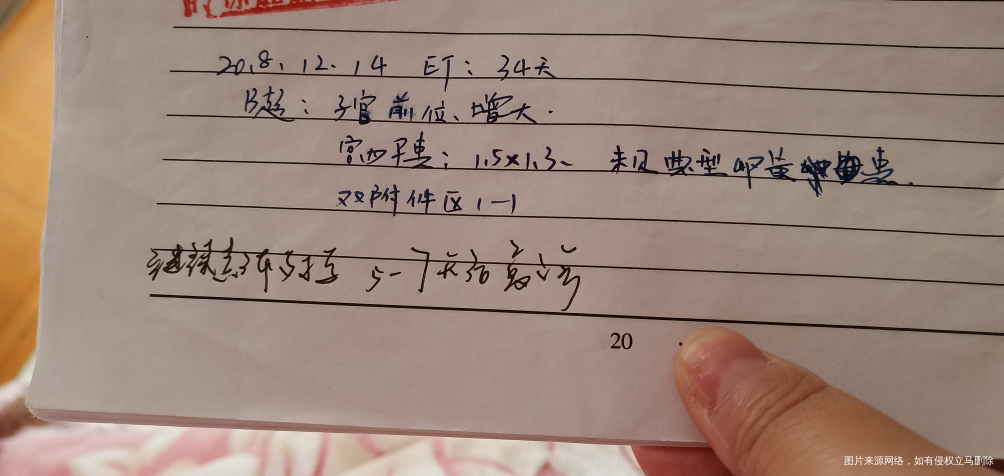 2018.12.14 ET: 34天
B超: 子宫前位、增大.
宫内早囊: 1.5×1.3、未见典型卵黄囊.
双附件区(-)
5-7天后
20
图片来源网络，如有侵权立马删除